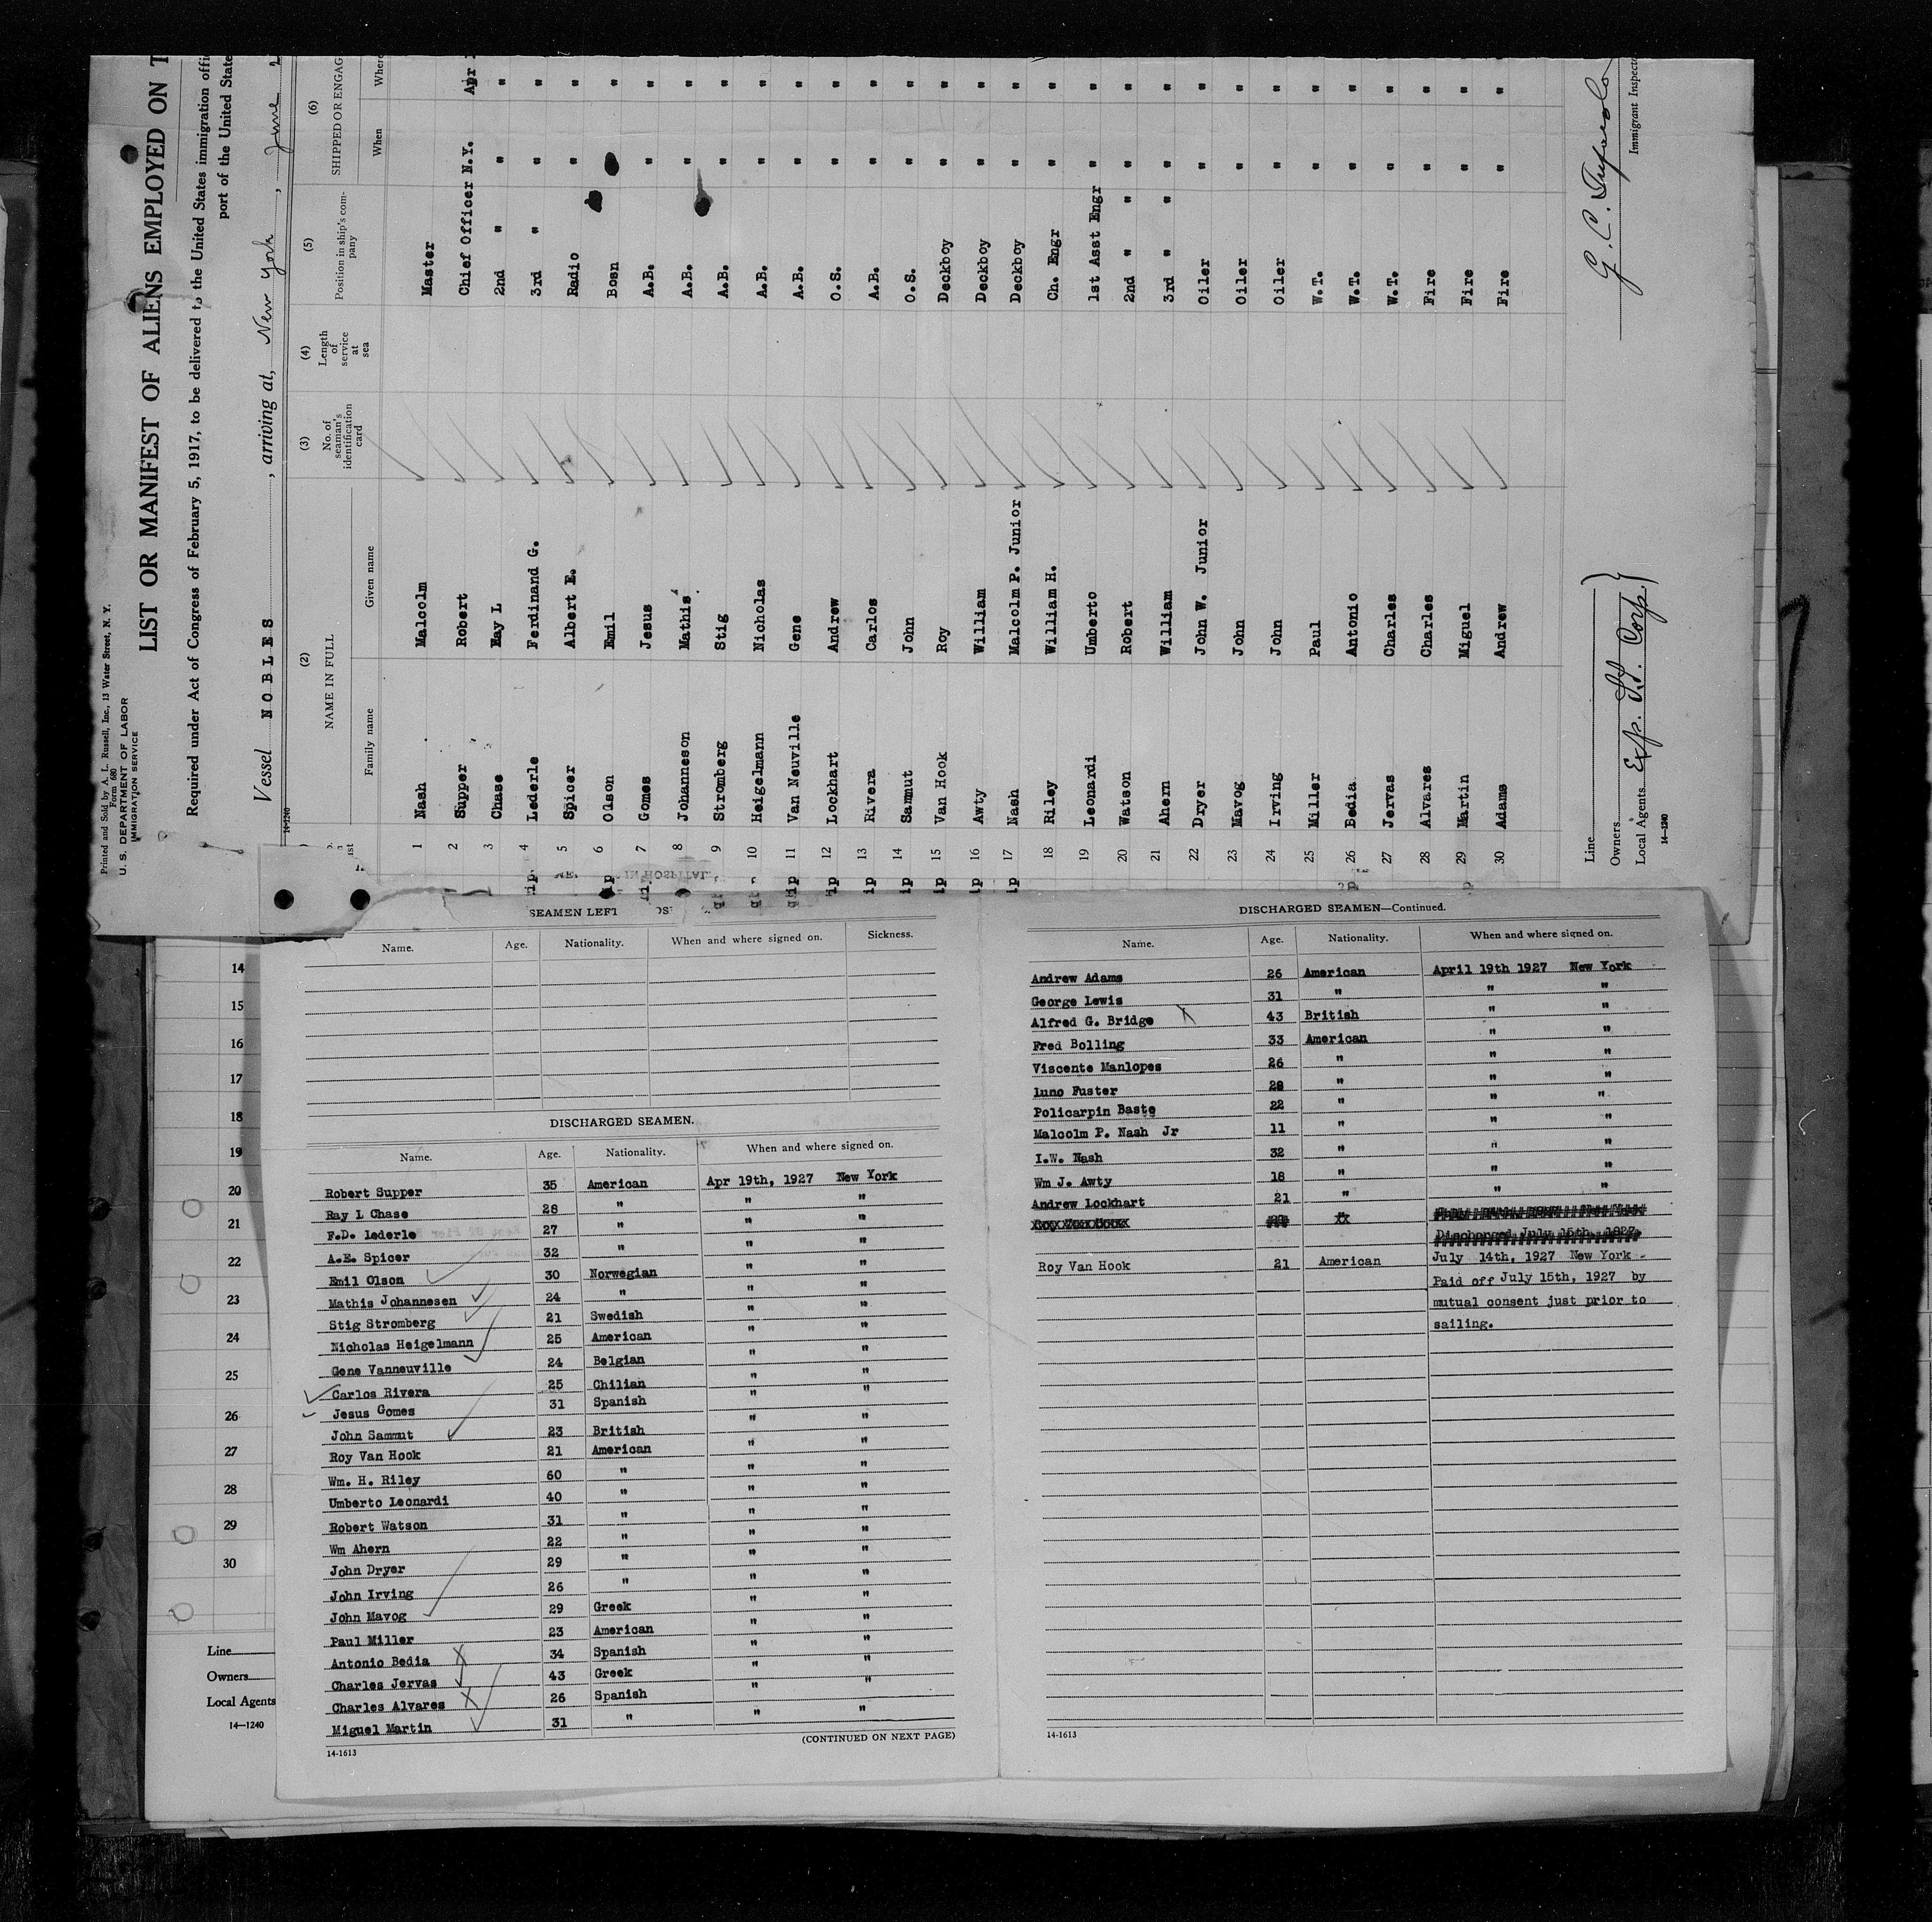 Printed and Sold by A. L. Russell, Inc., 13 Water Street, N. Y.
Form 680
U. S. DEPARTMENT OF LABOR
IMMIGRATION SERVICE
LIST OR MANIFEST OF ALIENS EMPLOYED ON T
Required under Act of Congress of February 5, 1917, to be delivered to the United States immigration offi
port of the United State
Vessel NOBLES, arriving at, New York, June 2
14-1240
(2) (3) (4) (5) (6)
NAME IN FULL No. of seaman's identification card Length of service at sea Position in ship's company SHIPPED OR ENGAG
Family name Given name When Where
1 Nash Malcolm Master
2 Supper Robert Chief Officer N.Y. Apr
3 Chase Ray L 2nd " " "
4 Lederle Ferdinand G. 3rd " " "
5 Spicer Albert E. Radio " "
6 Olson Emil Bosn "
7 Gomes Jesus A.B. " "
8 Johanneson Mathis A.B. " "
9 Stromberg Stig A.B. " "
10 Heigelmann Nicholas A.B. " "
11 Van Neuville Gene A.B. " "
12 Lockhart Andrew O.S. " "
13 Rivera Carlos A.B. " "
14 Sammut John O.S. " "
15 Van Hook Roy Deckboy " "
16 Awty William Deckboy " "
17 Nash Malcolm P. Junior Deckboy " "
18 Riley William H. Ch. Engr " "
19 Leonardi Umberto 1st Asst Engr " "
20 Watson Robert 2nd " " " "
21 Ahern William 3rd " " " "
22 Dryer John W. Junior Oiler " "
23 Mavog John Oiler " "
24 Irving John Oiler " "
25 Miller Paul W.T. " "
26 Bedia Antonio W.T. " "
27 Jervas Charles W.T. " "
28 Alvares Charles Fire " "
29 Martin Miguel Fire " "
30 Adams Andrew Fire " "
Line
Owners
Local Agents Exp. S.S. Corp.
14-1240
Immigrant Inspecto
IN HOSPITAL
SEAMEN LEFT
Name. Age. Nationality. When and where signed on. Sickness.
DISCHARGED SEAMEN.
Name. Age. Nationality. When and where signed on.
Robert Supper 35 American Apr 19th, 1927 New York
Ray L Chase 28 " " "
F.D. Lederle 27 " " "
A.E. Spicer 32 " " "
Emil Olson 30 Norwegian " "
Mathis Johannesen 24 " " "
Stig Stromberg 21 Swedish " "
Nicholas Heigelmann 25 American " "
Gene Vanneuville 24 Belgian " "
Carlos Rivera 25 Chilian " "
Jesus Gomes 31 Spanish " "
John Sammut 23 British " "
Roy Van Hook 21 American " "
Wm. H. Riley 60 " " "
Umberto Leonardi 40 " " "
Robert Watson 31 " " "
Wm Ahern 22 " " "
John Dryer 29 " " "
John Irving 26 " " "
John Mavog 29 Greek " "
Paul Miller 23 American " "
Antonio Bedia 34 Spanish " "
Charles Jervas 43 Greek " "
Charles Alvares 26 Spanish " "
Miguel Martin 31 " " "
(CONTINUED ON NEXT PAGE)
14-1613
DISCHARGED SEAMEN—Continued.
Name. Age. Nationality. When and where signed on.
Andrew Adams 26 American April 19th 1927 New York
George Lewis 31 " " "
Alfred G. Bridge 43 British " "
Fred Bolling 33 American " "
Viscente Manlopes 26 " " "
Luno Fuster 28 " " "
Policarpin Baste 22 " " "
Malcolm P. Nash Jr 11 " " "
I.W. Nash 32 " " "
Wm J. Awty 18 " " "
Andrew Lockhart 21 " " "
Discharged July 15th, 1927
Roy Van Hook 21 American July 14th, 1927 New York
Paid off July 15th, 1927 by
mutual consent just prior to
sailing.
14-1613
14
15
16
17
18
19
20
21
22
23
24
25
26
27
28
29
30
Line
Owners
Local Agents
14—1240